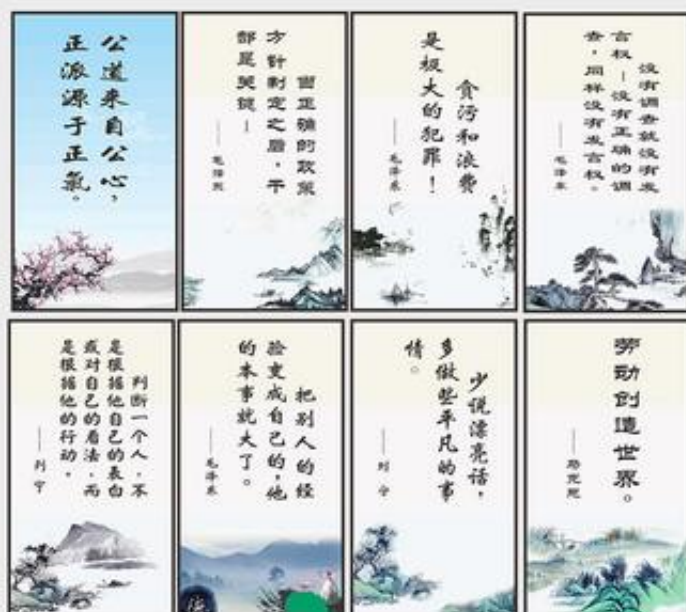 公道来自公心，
正派源于正氣。
当正确的政策
方针制定之后，干
部是关键！
——毛泽东
贪污和浪费
是极大的犯罪！
——毛泽东
没有调查就没有发
言权！没有正确的调
查，同样没有发言权。
——毛泽东
判断一个人，不
是根据他自己的表白
或对自己的看法，而
是根据他的行动。
——列宁
把别人的经
验变成自己的，他
的本事就大了。
——毛泽东
少说漂亮话，
多做些平凡的事
情。
——列宁
劳动创造世界。
——马克思